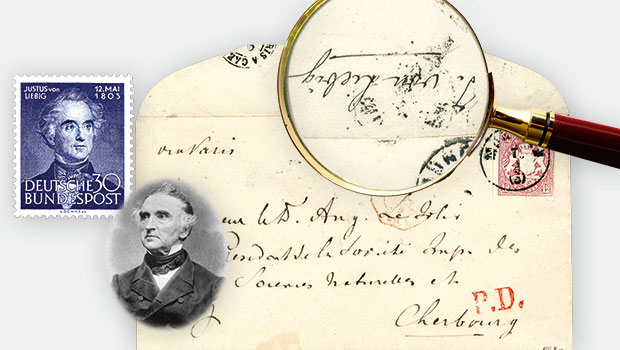 JUSTUS VON
LIEBIG
12. MAI
1803
DEUTSCHE 30
BUNDESPOST
J. von Liebig
via Paris
le Dr. Aug. Le Jolis
de la Société Imp. des
Sciences naturelles et
Cherbourg
P.D.